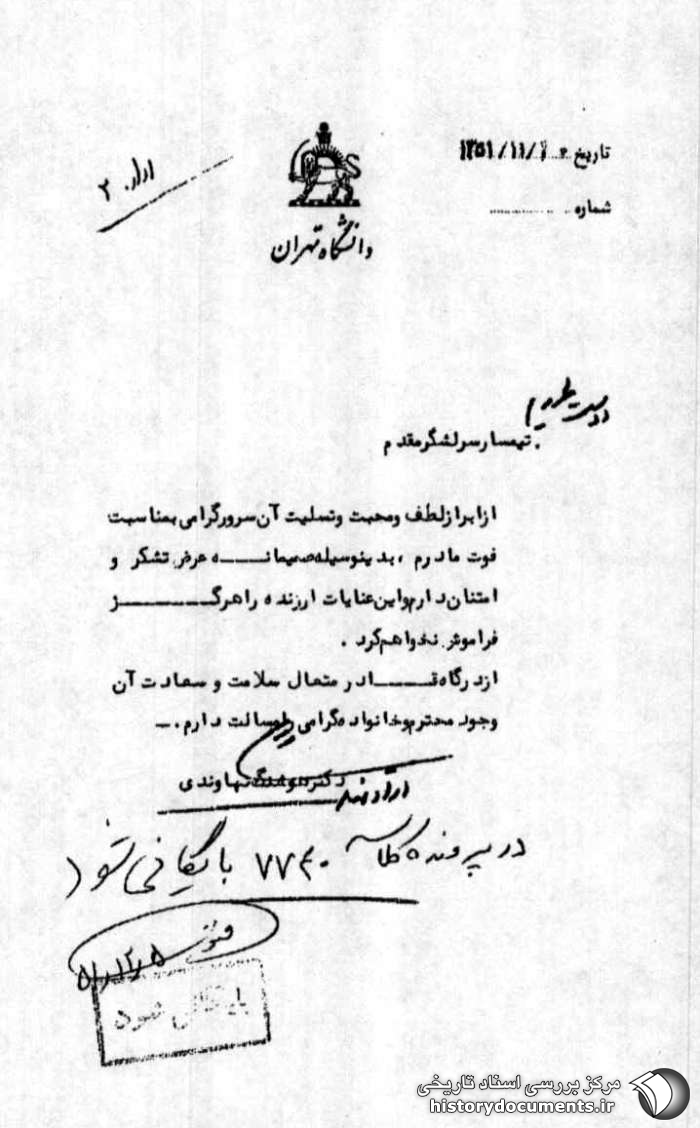 تاریخ ۱۳۵۱/۱۱/
شماره
اداره ۳
دانشگاه تهران
دوست عزیزم
تیمسار سرلشگر مقدم
از ابراز لطف و محبت و تسلیت آن سرور گرامی بمناسبت
فوت مادرم ، بدینوسیله صمیمانه عرض تشکر و
امتنان دارم و این عنایات ارزنده را هرگز
فراموش نخواهم کرد .
از درگاه قادر متعال سلامت و سعادت آن
وجود محترم و خانواده گرامی را مسالت دارم .ـ
ارادتمند
دکتر هوشنگ نهاوندی
در پرونده کلاسه ۷۷۴۰ بایگانی شود
۵۱/۱۲/۵
بایگانی شود
مرکز بررسی اسناد تاریخی
historydocuments.ir